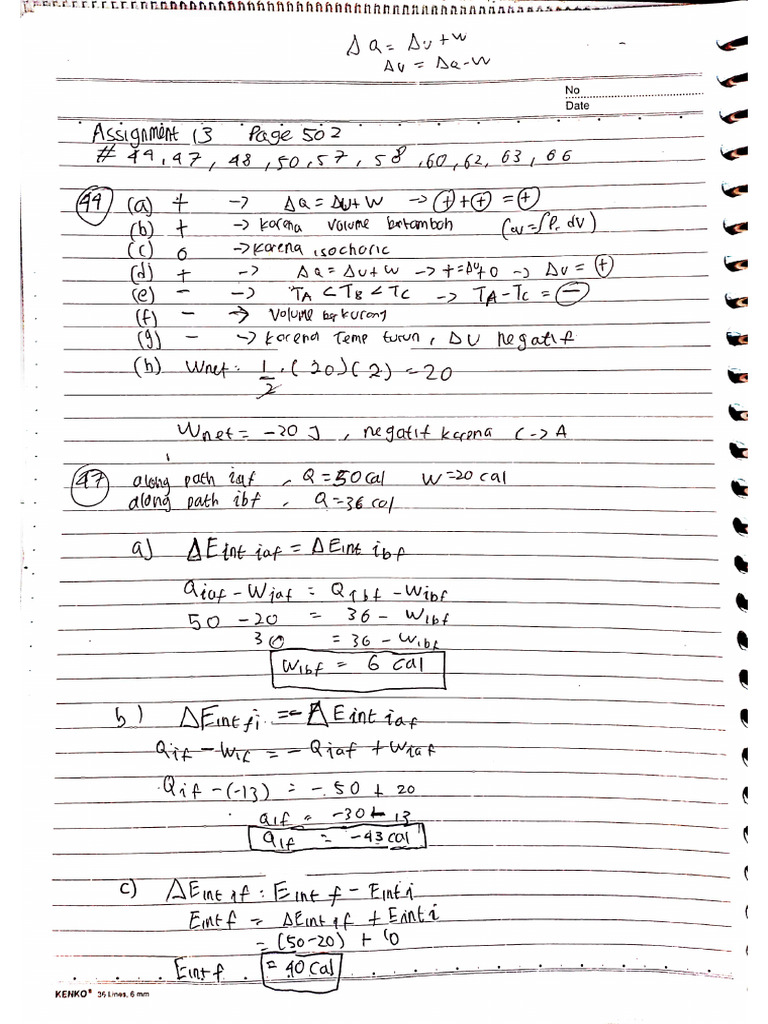 ΔQ = ΔU + W
ΔU = ΔQ - W
No
Date
Assignment 13 Page 502
# 44, 47, 48, 50, 57, 58, 60, 62, 63, 66
44 (a) + -> ΔQ = ΔU + W -> (+) + (+) = (+)
(b) + -> Karena volume bertambah (W = ∫P. dV)
(c) 0 -> Karena isochoric
(d) + -> ΔQ = ΔU + W -> + = ΔU + 0 -> ΔU = (+)
(e) - -> TA < TB < TC -> TA - TC = (-)
(f) - -> Volume berkurang
(g) - -> Karena Temp turun, ΔU negatif
(h) Wnet: 1/2 . (20)(2) = 20
Wnet = -20 J, negatif karena C -> A
47 along path iaf, Q = 50 Cal W = 20 cal
along path ibf, Q = 36 cal
a) ΔEint iaf = ΔEint ibf
Qiaf - Wiaf = Qibf - Wibf
50 - 20 = 36 - Wibf
30 = 36 - Wibf
Wibf = 6 Cal
b) ΔEint fi = - ΔEint iaf
Qif - Wif = - Qiaf + Wiaf
Qif - (-13) = - 50 + 20
Qif = -30 - 13
Qif = -43 cal
c) ΔEint if : Eint f - Eint i
Eint f = ΔEint if + Eint i
= (50-20) + 10
Eint f. = 40 Cal
KENKO® 36 Lines, 6 mm